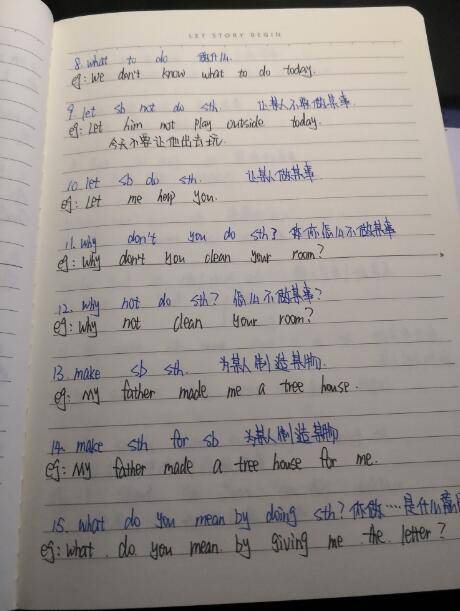 LET STORY BEGIN
8. what to do 做什么
eg: We don't know what to do today.
9. let sb not do sth. 让某人不要做某事
eg: Let him not play outside today.
今天不要让他出去玩.
10. let sb do sth. 让某人做某事
eg: Let me help you.
11. why don't you do sth? 你怎么不做某事
eg: Why don't you clean your room?
12. why not do sth? 怎么不做某事?
eg: Why not clean your room?
13. make sb sth. 为某人制造某物.
eg: My father made me a tree house.
14. make sth for sb 为某人制造某物
eg: My father made a tree house for me.
15. what do you mean by doing sth? 你做....是什么意
eg: what do you mean by giving me the letter?